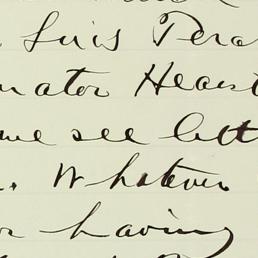 Luis Pera
nator Hearst
me see lett
. Whatever
or having